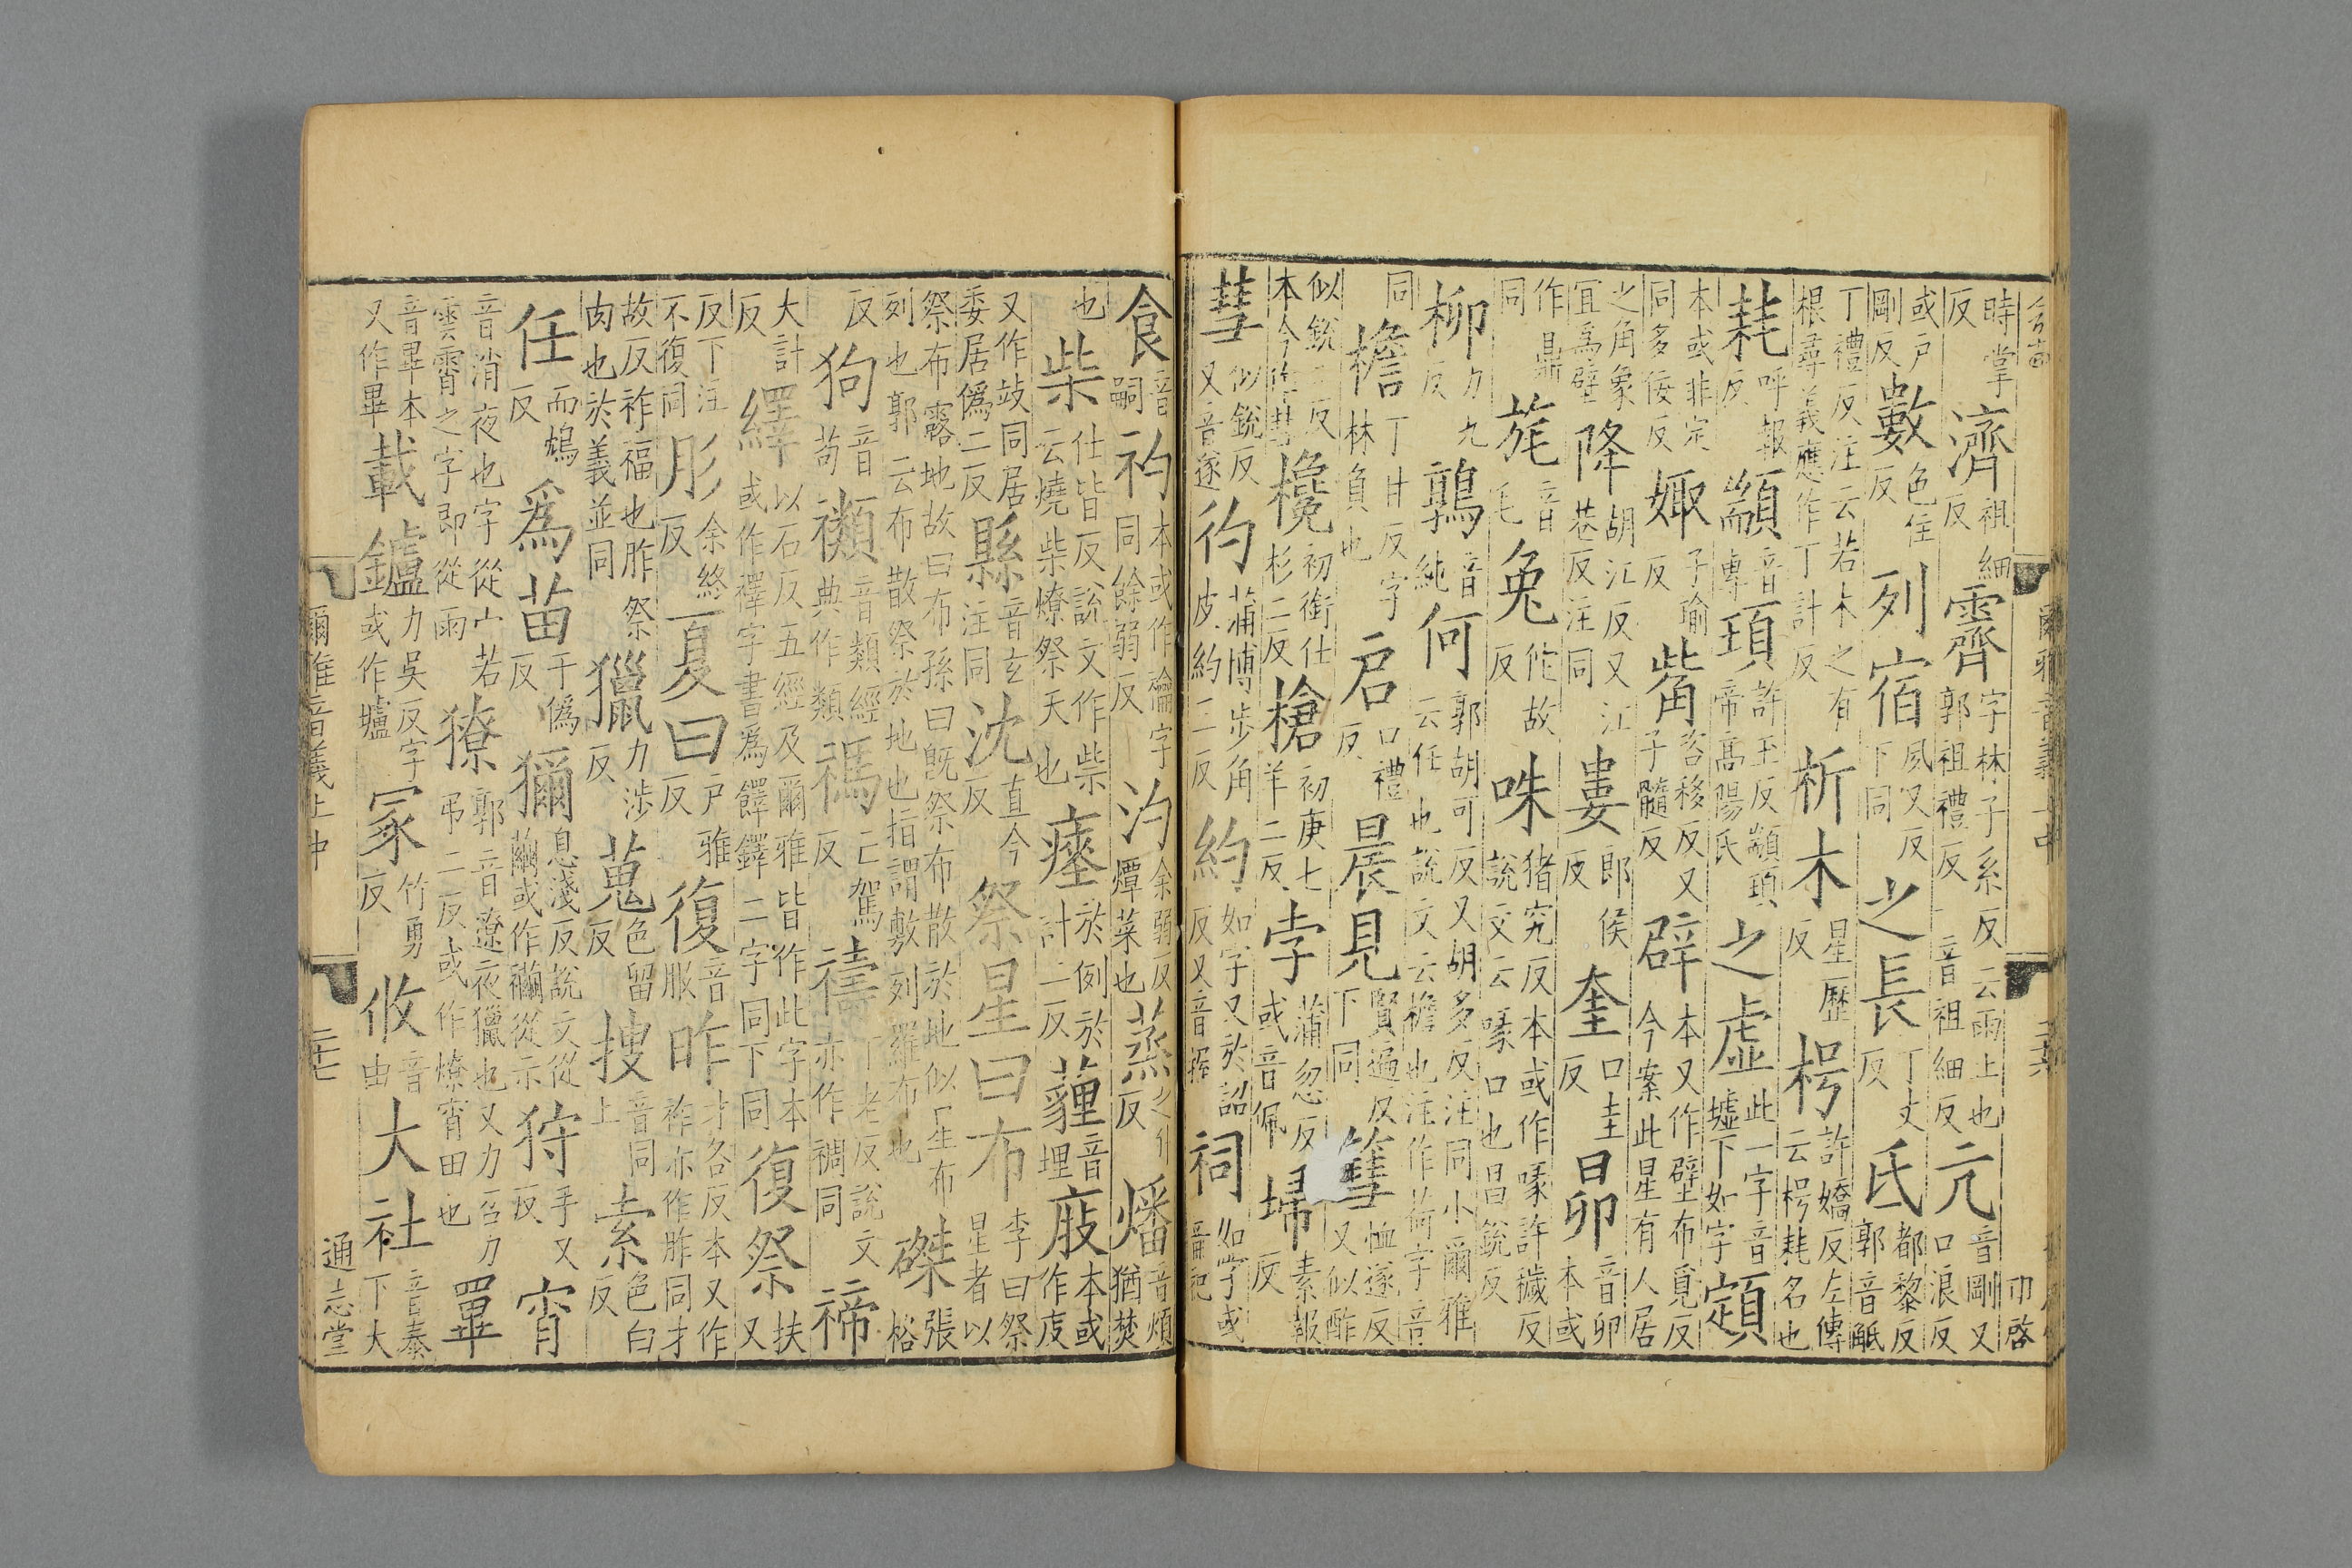 時掌反濟祖細反霽字林子系反云雨上也郭祖禮反一音祖細反亢音剛又口浪反
或戶剛反數色住反列宿夙又反下同之長丁丈反氐都黎反郭音觝
丁禮反注云若木之有根尋義應作丁計反析木星歷反枵許嬌反左傳云枵耗名也
耗呼報反顓音專頊許玉反顓頊帝高陽氏之虛此一字音墟下如字顁
本或非定同多佞反娵子瑜反觜咨移反又子髓反辟本又作壁布覓反今案此星有人居
之角象宜為壁降胡江反又江巷反注同婁郎侯反奎口圭反昴音卯本或
作鼎同旄音毛兔佗故反咮猪究反本或作喙許穢反說文云喙口也昌銳反
柳力九反鶉音純何郭胡可反又胡多反注同小爾雅云任也說文云檐也注作荷字音
同檐丁甘反字林負也启口禮反晨見賢遍反下同篲恤遂反又似酢
似銳二反本今作彗欃初銜仕杉二反槍初庚七羊二反孛蒲忽反或音佩埽素報反
彗似銳反又音遂彴蒲博步角皮約三反約如字又於詔反又音握祠如字或音祀
食音嗣礿本或作禴字同餘弱反汋余弱反爚菜也蒸之仍反燔音煩猶焚
也柴仕皆反說文作柴云燒柴燎祭天也瘞於例於計二反薶音埋庪本或作庋
又作攱同居委居偽二反縣音玄注同沈直今反祭星曰布李曰祭星者以
祭布露地故曰布孫曰既祭布散於地似星布列也郭云布散祭於地也指謂敷列羅布也磔張格
反狗音苟禷音類經典作類禡亡駕反禱丁老反說文亦作禂同禘
大計反繹以石反五經及爾雅皆作此字本或作襗字書為𩛿鐸二字同下同復祭扶又
反下注不復同肜余終反夏曰戶雅反復音服昨才各反本又作祚亦作胙同才
故反祚福也胙祭肉也於義並同獵力涉反蒐色留反搜音同上索色白反
任而鴆反為苗于偽反獮息淺反說文從䌳或作禰從示狩手又反宵
音消夜也字從宀若雲霄之字即從雨獠郭音遼夜獵也又力召力弔二反或作燎宵田也罼
音畢本又作畢載鑪力吳反字或作壚冢竹勇反攸音由大社音泰下大
爾雅音義上中
二十七
通志堂